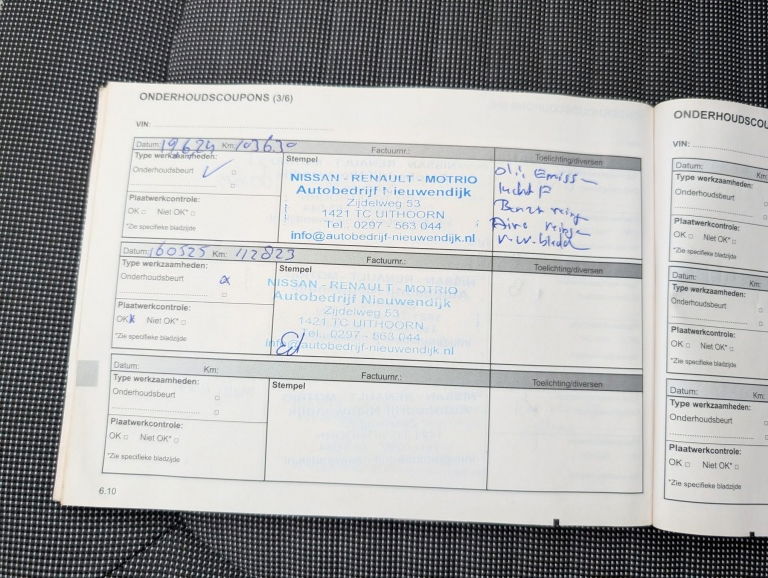 ONDERHOUDSCOUPONS (3/6)
VIN:
Datum: 19.6.24 Km: 103630 Factuurnr.: Toelichting/diversen
Type werkzaamheden:
Onderhoudsbeurt
Plaatwerkcontrole:
OK Niet OK*
*Zie specifieke bladzijde
Stempel
NISSAN - RENAULT - MOTRIO
Autobedrijf Nieuwendijk
Zijdelweg 53
1421 TC UITHOORN
Tel.: 0297 - 563 044
info@autobedrijf-nieuwendijk.nl
Airco
Datum: 160525 Km: 112823 Factuurnr.: Toelichting/diversen
Type werkzaamheden:
Onderhoudsbeurt
Plaatwerkcontrole:
OK Niet OK*
*Zie specifieke bladzijde
Stempel
NISSAN - RENAULT - MOTRIO
Autobedrijf Nieuwendijk
Zijdelweg 53
1421 TC UITHOORN
Tel.: 0297 - 563 044
info@autobedrijf-nieuwendijk.nl
Datum: Km: Factuurnr.: Toelichting/diversen
Type werkzaamheden:
Onderhoudsbeurt
Plaatwerkcontrole:
OK Niet OK*
*Zie specifieke bladzijde
Stempel
6.10
ONDERHOUDSCOU
VIN:
Datum: Km:
Type werkzaamheden:
Onderhoudsbeurt
Plaatwerkcontrole:
OK Niet OK*
*Zie specifieke bladzijde
Datum: Km:
Type werkzaamheden:
Onderhoudsbeurt
Plaatwerkcontrole:
OK Niet OK*
*Zie specifieke bladzijde
Datum: Km:
Type werkzaamheden:
Onderhoudsbeurt
Plaatwerkcontrole:
OK Niet OK*
*Zie specifieke bladzijde